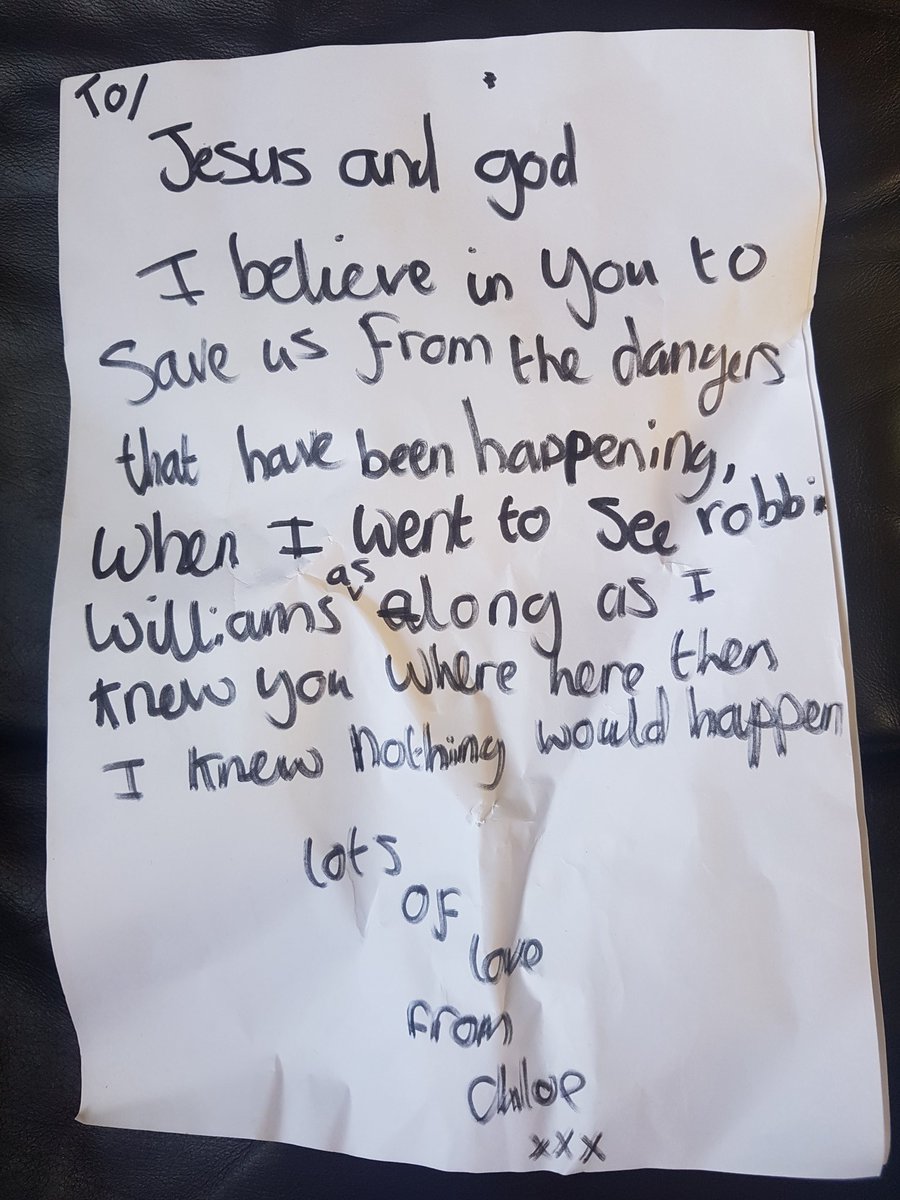 To/
Jesus and god
I believe in you to
Save us from the dangers
that have been happening,
When I went to See robbi
Williams as along as I
knew you where here then
I knew nothing would happen
lots
of
love
from
Chloe
xxx